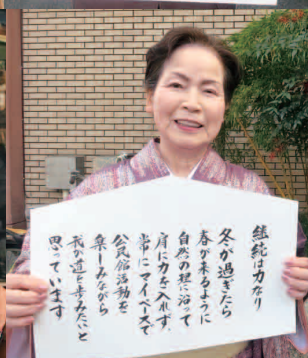 継続は力なり
冬が過ぎたら
春が来るように
自然の理に沿って
肩に力を入れず、
常にマイペースで
公民館活動を
楽しみながら
我が道を歩みたいと
思っています